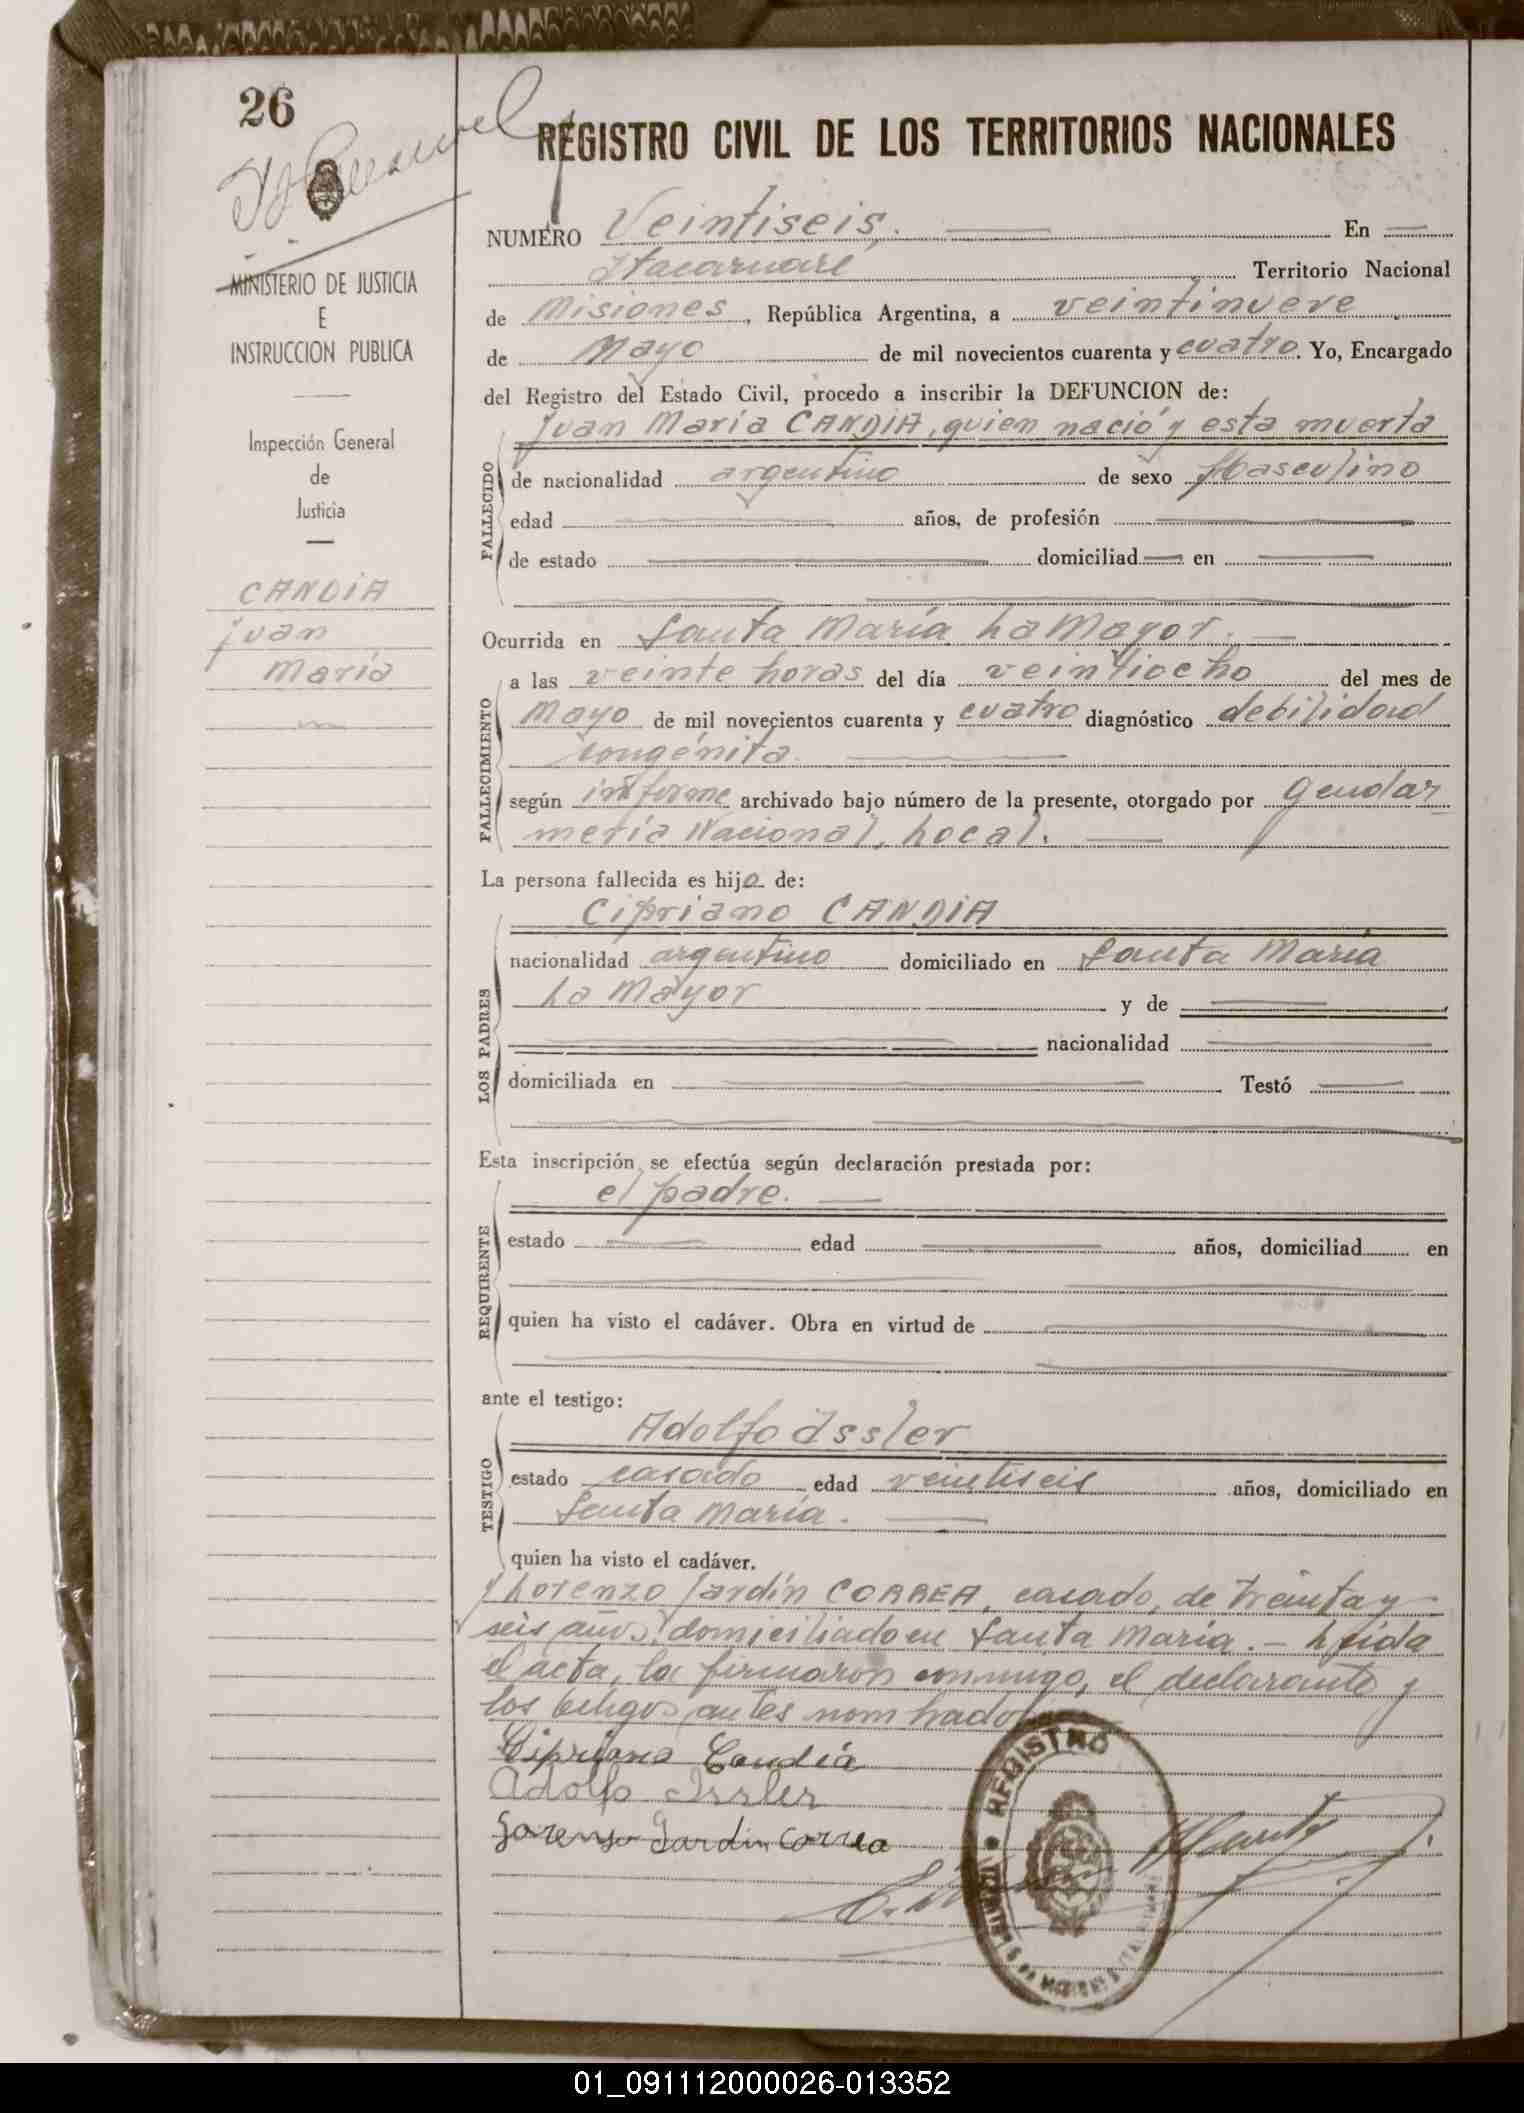 26
REGISTRO CIVIL DE LOS TERRITORIOS NACIONALES
MINISTERIO DE JUSTICIA
E
INSTRUCCION PUBLICA
Inspección General
de
Justicia
CANDIA
juan
maría
NUMERO Veintiseis. En
Itacaruaré Territorio Nacional
de Misiones, República Argentina, a veintinueve
de Mayo de mil novecientos cuarenta y cuatro. Yo, Encargado
del Registro del Estado Civil, procedo a inscribir la DEFUNCION de:
Juan María CANDIA, quien nació y esta muerta
FALLECIDO
de nacionalidad argentino de sexo Masculino
edad años, de profesión
de estado domiciliad en
Ocurrida en Santa María La Mayor.
FALLECIMIENTO
a las veinte horas del día veintiocho del mes de
Mayo de mil novecientos cuarenta y cuatro diagnóstico debilidad
congénita.
según informe archivado bajo número de la presente, otorgado por Gendar
mería Nacional, Local.
La persona fallecida es hijo de:
LOS PADRES
Cipriano CANDIA
nacionalidad argentino domiciliado en Santa María
La Mayor y de
nacionalidad
domiciliada en Testó
Esta inscripción, se efectúa según declaración prestada por:
REQUIRENTE
el padre.
estado edad años, domiciliad en
quien ha visto el cadáver. Obra en virtud de
ante el testigo:
TESTIGO
Adolfo Issler
estado casado edad veintiseis años, domiciliado en
Santa María.
quien ha visto el cadáver.
y Lorenzo Jardín CORREA, casado, de treinta y
seis años, domiciliado en Santa María. - Leida
el acta, la firmaron conmigo, el declarante y
los testigos antes nombrados
Cipriano Candia
Adolfo Issler
Lorenzo Jardin Correa
REGISTRO
01_091112000026-013352